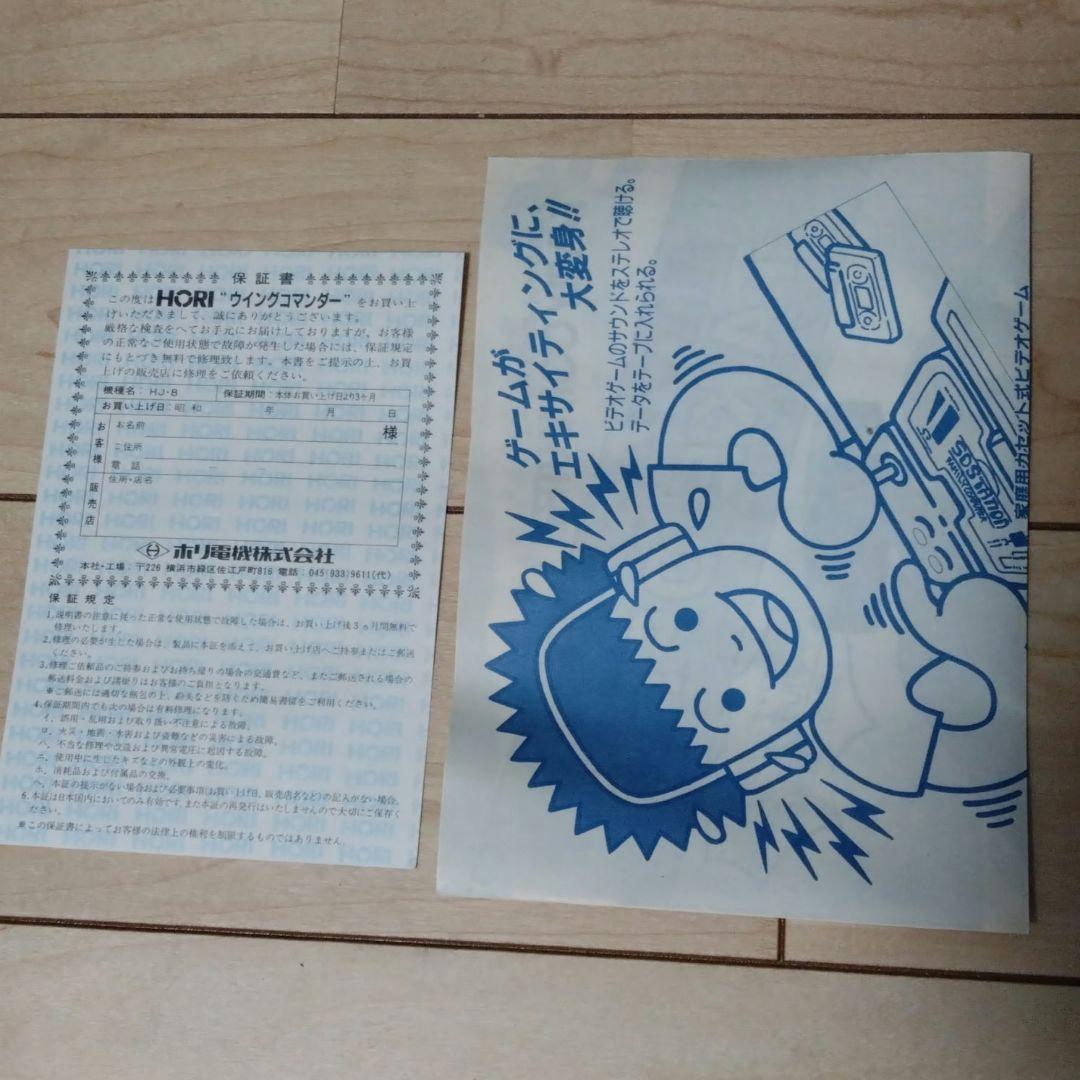 保証書
この度はHORI“ウイングコマンダー”をお買い上
げいただきまして、誠にありがとうございます。
厳格な検査をへてお手元にお届けしておりますが、お客様
の正常なご使用状態で故障が発生した場合には、保証規定
にもとづき無料で修理致します。本書をご提示の上、お買
上げの販売店に修理をご依頼ください。
機種名：HJ-8 保証期間：本体お買い上げ日より3ヶ月
お買い上げ日：昭和 年 月 日
お客様
お名前 様
ご住所
電話
販売店
住所・店名
ホリ電機株式会社
本社・工場：〒226 横浜市緑区佐江戸町816 電話：045(933)9611(代)
保証規定
1.説明書の注意に従った正常な使用状態で故障した場合は、お買い上げ後3ヵ月間無料で
修理いたします。
2.修理の必要が生じた場合は、製品に本証を添えて、お買い上げ店へご持参またはご郵送
ください。
3.修理ご依頼品のご持参およびお持ち帰りの場合の交通費など、またご郵送される場合の
郵送料金および諸掛りはお客様のご負担となります。
※ご郵送には適切な梱包の上、紛失などを防ぐため簡易書留をご利用ください。
4.保証期間内でも次の場合は有料修理になります。
イ、誤用・乱用および取り扱い不注意による故障。
ロ、火災・地震・水害および盗難などの災害による故障。
ハ、不当な修理や改造および異常電圧に起因する故障。
ニ、使用中に生じたキズなどの外観上の変化。
ホ、消耗品および付属品の交換。
ヘ、本証の提示がない場合および必要事項(お買い上げ日、販売店名など)の記入がない場合。
6.本証は日本国内においてのみ有効です。また本証の再発行はいたしませんので大切にご保存く
ださい。
※この保証書によってお客様の法律上の権利を制限するものではありません。
ゲームが
エキサイティングに、
大変身!!
ビデオゲームのサウンドをステレオで聴ける。
データをテープに入れられる。
SD Station
FAMILY COMPUTER
家庭用カセット式ビデオゲーム